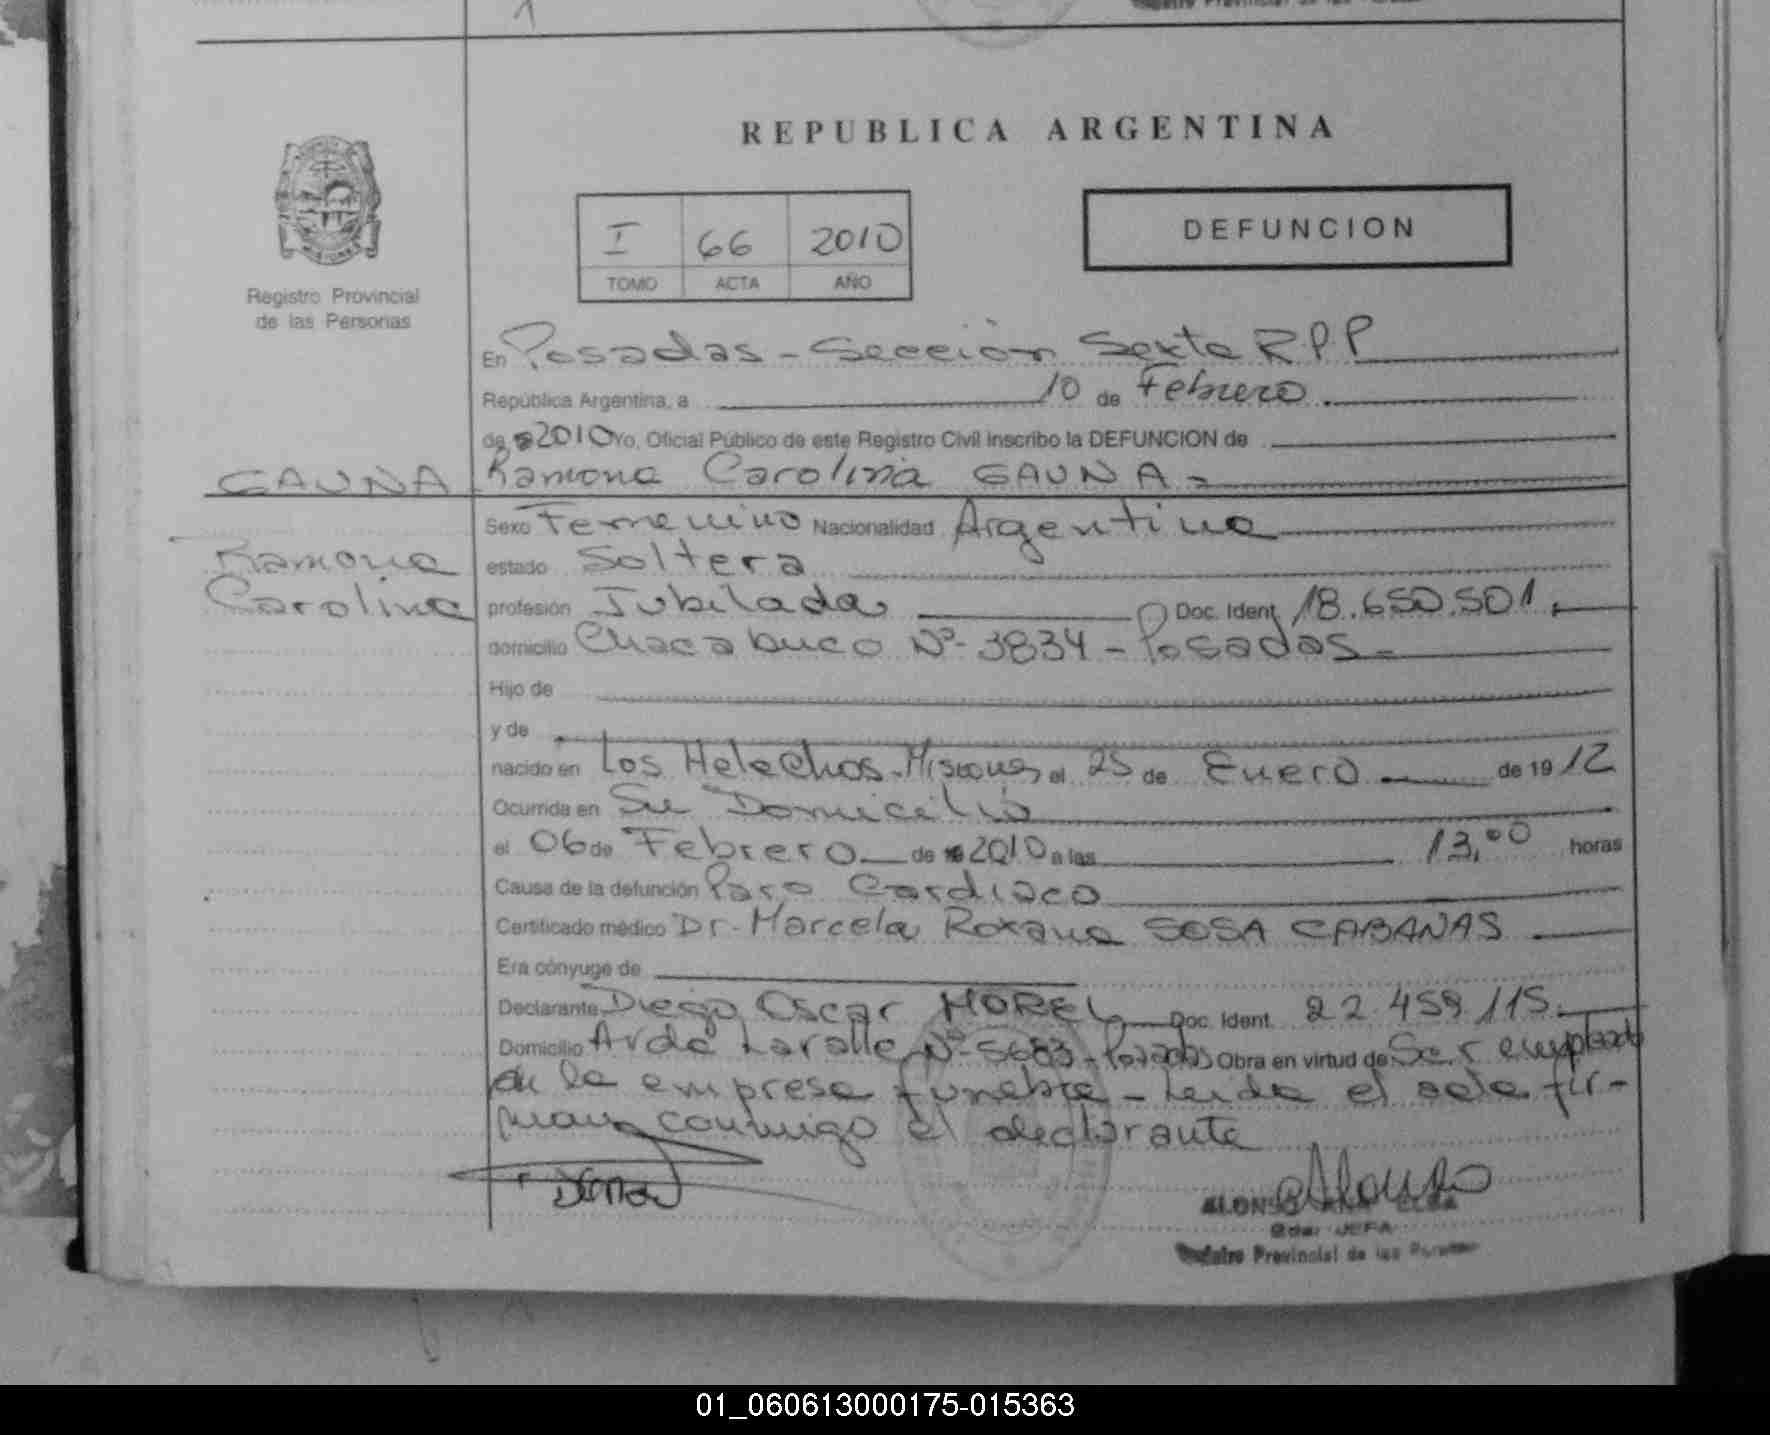 1
REPUBLICA ARGENTINA
I 66 2010
TOMO ACTA AÑO
DEFUNCION
Registro Provincial
de las Personas
En Posadas - Sección Sexta R.P.P
República Argentina, a 10 de Febrero
de 2010 Yo, Oficial Público de este Registro Civil inscribo la DEFUNCION de
GAUNA Ramona Carolina GAUNA
Sexo Femenino Nacionalidad Argentina
Ramona estado Soltera
Carolina profesión Jubilada Doc. Ident. 18.650.501
domicilio Chacabuco Nº 3834 - Posadas
Hijo de
y de
nacido en Los Helechos - Misiones el 25 de Enero de 1912
Ocurrida en Su Domicilio
el 06 de Febrero de 2010 a las 13,00 horas
Causa de la defunción Paro Cardiaco
Certificado médico Dr. Marcela Roxana SOSA CABANAS
Era cónyuge de
Declarante Diego Oscar MOREL Doc. Ident. 22.459.115
Domicilio Avda Lavalle Nº 5683 - Posadas Obra en virtud de Ser empleado
de la empresa funebre - Leida el acta fir-
man conmigo el declarante
ALONSO ANA ELBA
JEFA
Registro Provincial de las Personas
01_060613000175-015363